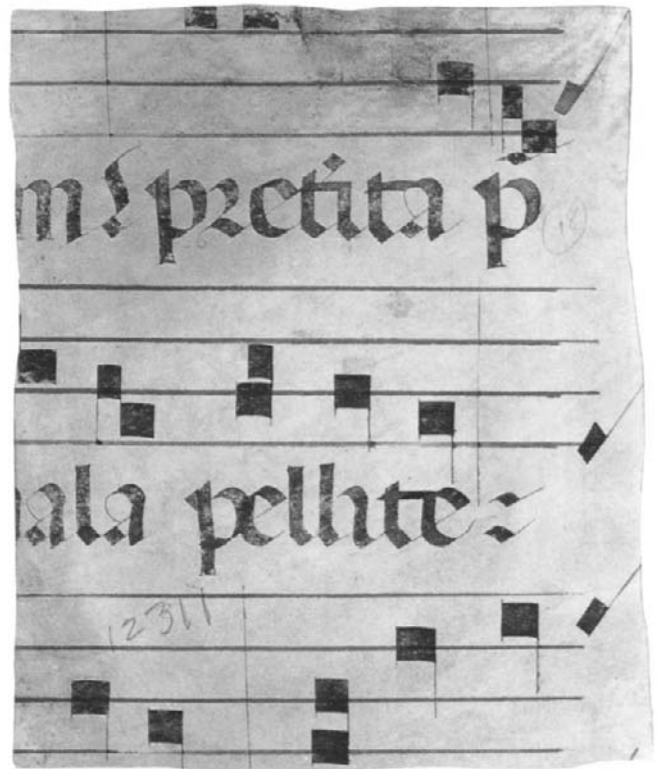 m pretita p
ala pellite:
12311